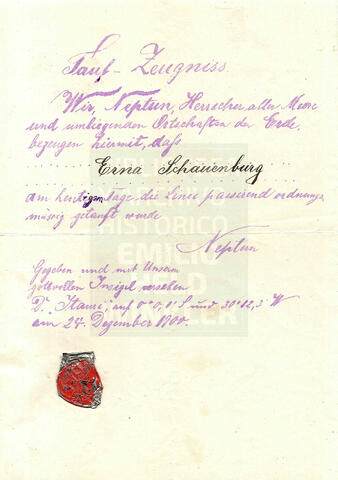 Tauf-Zeugniss.
Wir, Neptun, Herrscher aller Meere
und umliegenden Ortschaften der Erde,
bezeugen hiermit, daß
Erna Schauenburg
am heutigen Tage, die Linie passierend ordnungs
mässig getauft wurde
Neptun
Gegeben und mit Unserm
gottvollen Insigel versehen
D. "Itauri", auf 0° 0,1' S und 30° 12,3' W
am 27. Dezember 1900.
HISTORICO
EMILIO
HELD
WINKLER